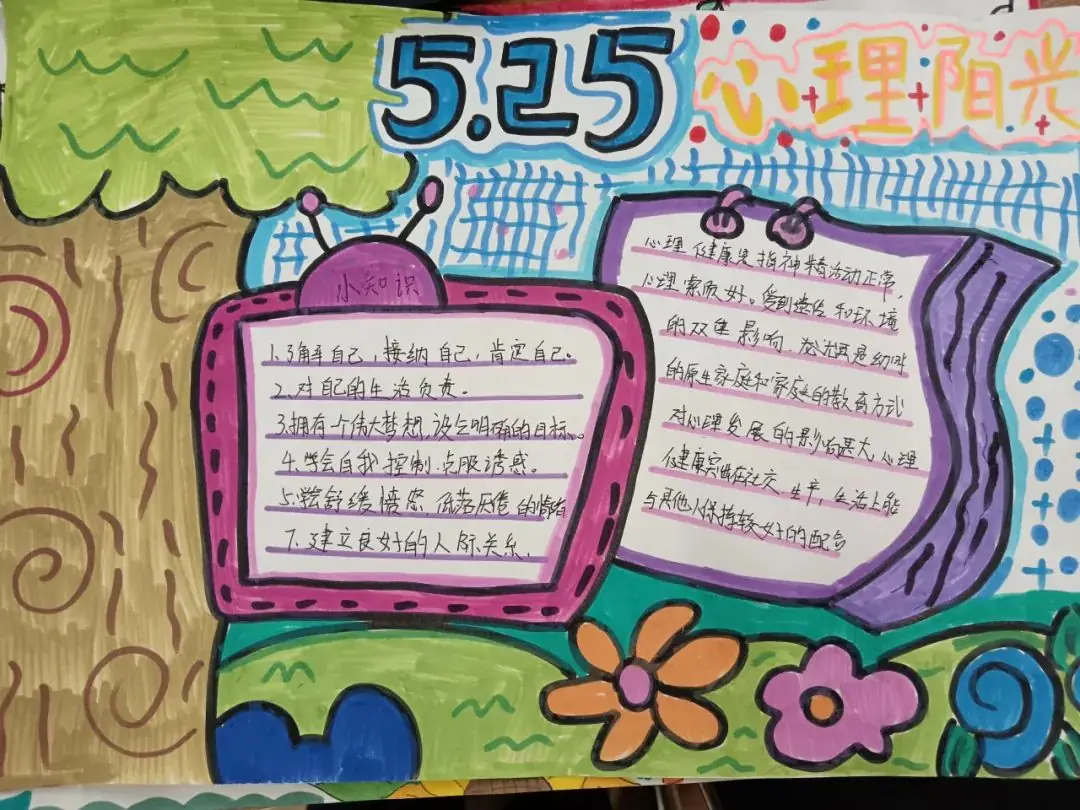 5.25
心理阳光
小知识
1.了解自己,接纳自己,肯定自己。
2.对自己的生活负责。
3.拥有一个伟大梦想,设立明确的目标。
4.学会自我控制,克服诱惑。
5.学会舒缓愤怒 低落厌倦的情绪
7.建立良好的人际关系.
心理健康是指神精活动正常,
心理素质好。受到遗传和环境
的双重影响.尤其是幼时
的原生家庭和家庭的教育方式
对心理发展的影响甚大 心理
健康突出在社交 生产,生活上能
与其他人保持较好的配合